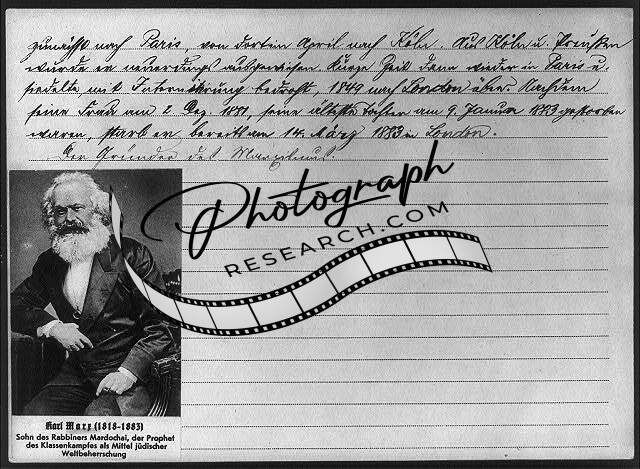 zunächst nach Paris, von dort im April nach Köln. Aus Köln u. Preußen
wurde er neuerdings ausgewiesen. Kurze Zeit dann wieder in Paris u.
siedelte, mit Internierung bedroht, 1849 nach London über. Nachdem
seine Frau am 2. Dez. 1881, seine älteste Tochter am 9. Januar 1883 gestorben
waren, starb er bereits am 14. März 1883 in London.
Der Gründer des Marxismus.
Photograph
RESEARCH.COM
Karl Marx (1818-1883)
Sohn des Rabbiners Mardochai, der Prophet
des Klassenkampfes als Mittel jüdischer
Weltbeherrschung